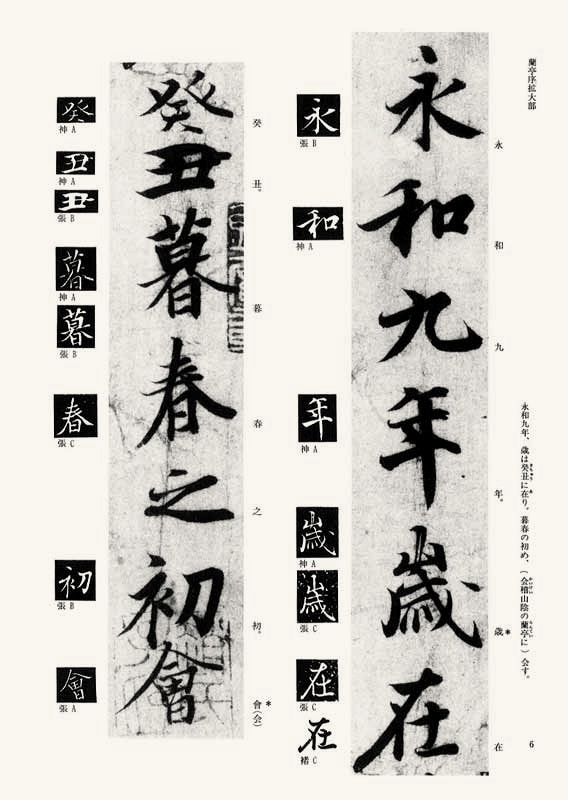 蘭亭序拡大部
永和九年、歳は癸丑に在り。暮春の初め、（会稽山陰の蘭亭に）会す。
6
永
和
九
年。
歳*
在
永和九年歳在
永
張 B
和
神 A
年
神 A
歳
神 A
歳
張 C
在
張 C
在
褚 C
癸
丑。
暮
春
之
初。
會(会)*
癸丑暮春之初會
癸
神 A
丑
神 A
丑
張 B
暮
神 A
暮
張 B
春
張 C
初
張 B
會
張 A